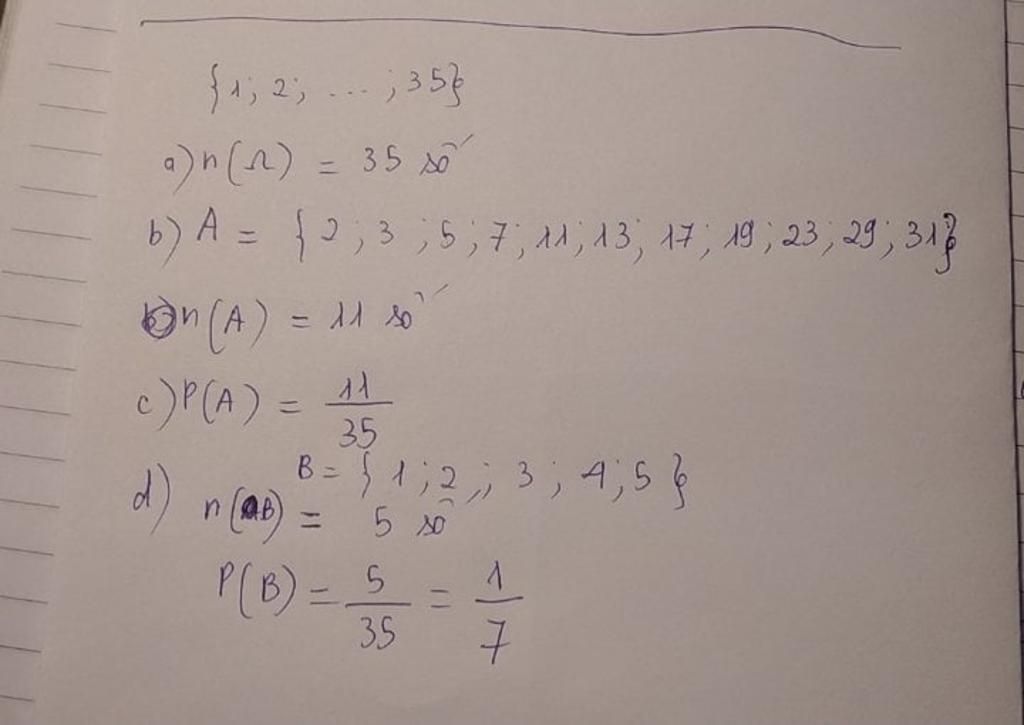 {1; 2; ...; 35}
a) n(Ω) = 35 số
b) A = {2; 3; 5; 7; 11; 13; 17; 19; 23; 29; 31}
n(A) = 11 số
c) P(A) = 11/35
d) B = {1; 2;; 3; 4; 5}
n(B) = 5 số
P(B) = 5/35 = 1/7